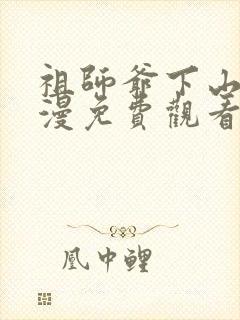 祖師爺下山
漫免費觀看
凰中鯉